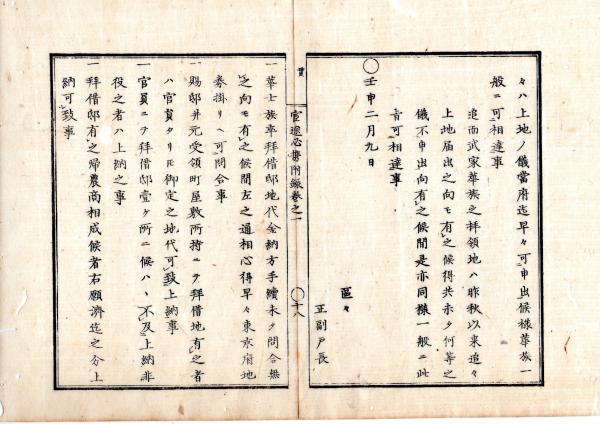 々ハ上地ノ儀當府迄早々可申出候様華族一
般ニ可相達事
追而武家華族之拝領地ハ昨秋以来追々
上地届出之向モ有之候得共未タ何等之
儀不申出向有之候間是亦同様一般ニ此
旨可相達事
〇壬申二月九日
區々
正副戸長
貫
官途必携附録巻之一
〇十八
一華士族卒拜借邸地代金納方手續未タ問合無
之向モ有之候間左之通相心得早々東京府地
券掛リヘ可問合事
一賜邸并元受領町屋敷所持ニテ拜借地有之者
ハ官員タリ圧御定之地代可致上納事
一官員ニテ拜借邸壹ケ所ニ候ハヽ不及上納非
役之者ハ上納之事
一拜借邸有之歸農商相成候者右願濟迄之分上
納可致事